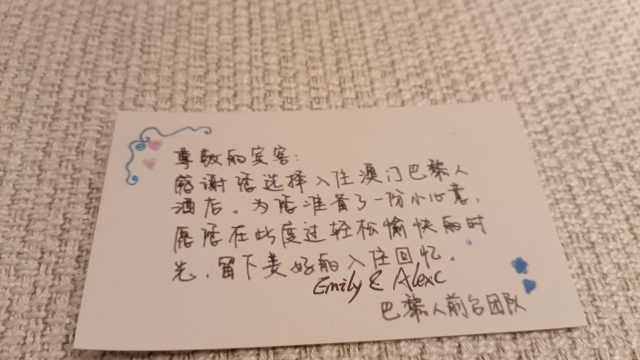 尊敬的宾客:
感谢您选择入住澳门巴黎人
酒店。为您准备了一份小心意,
愿您在此度过轻松愉快的时
光,留下美好的入住回忆。
Emily & Alexc
巴黎人前台团队